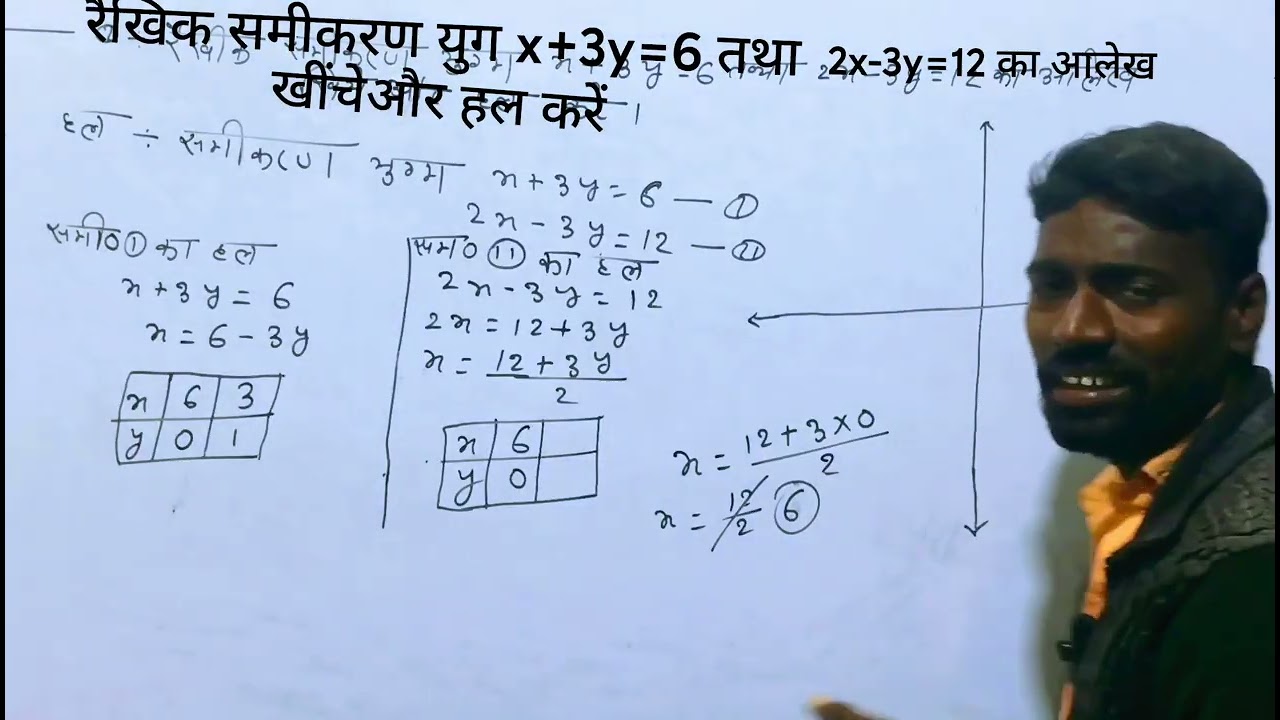 रैखिक समीकरण युग x+3y=6 तथा 2x-3y=12 का आलेख
खींचेऔर हल करें
हल ÷ समीकरण युग्म x + 3y = 6 — ①
2x - 3y = 12 — ⑪
समी० ① का हल
x + 3y = 6
x = 6 - 3y
x 6 3
y 0 1
सम० ⑪ का हल
2x - 3y = 12
2x = 12 + 3y
x = 12 + 3y / 2
x 6
y 0
x = 12 + 3 × 0 / 2
x = 12 / 2 ⑥